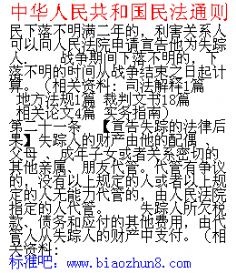 中华人民共和国民法通则
民下落不明满二年的，利害关系人
可以向人民法院申请宣告他为失踪
人。　　战争期间下落不明的，下
落不明的时间从战争结束之日起计
算。（相关资料：司法解释1篇
地方法规1篇 裁判文书18篇
相关论文4篇 实务指南）
第二十一条　【宣告失踪的法律后
果】失踪人的财产由他的配偶、
父母、成年子女或者关系密切的
其他亲属、朋友代管。代管有争议
的，没有以上规定的人或者以上规
定的人无能力代管的，由人民法院
指定的人代管。　　失踪人所欠税
款、债务和应付的其他费用，由代
管人从失踪人的财产中支付。（相
关资料：
标准吧：www.biaozhun8.com